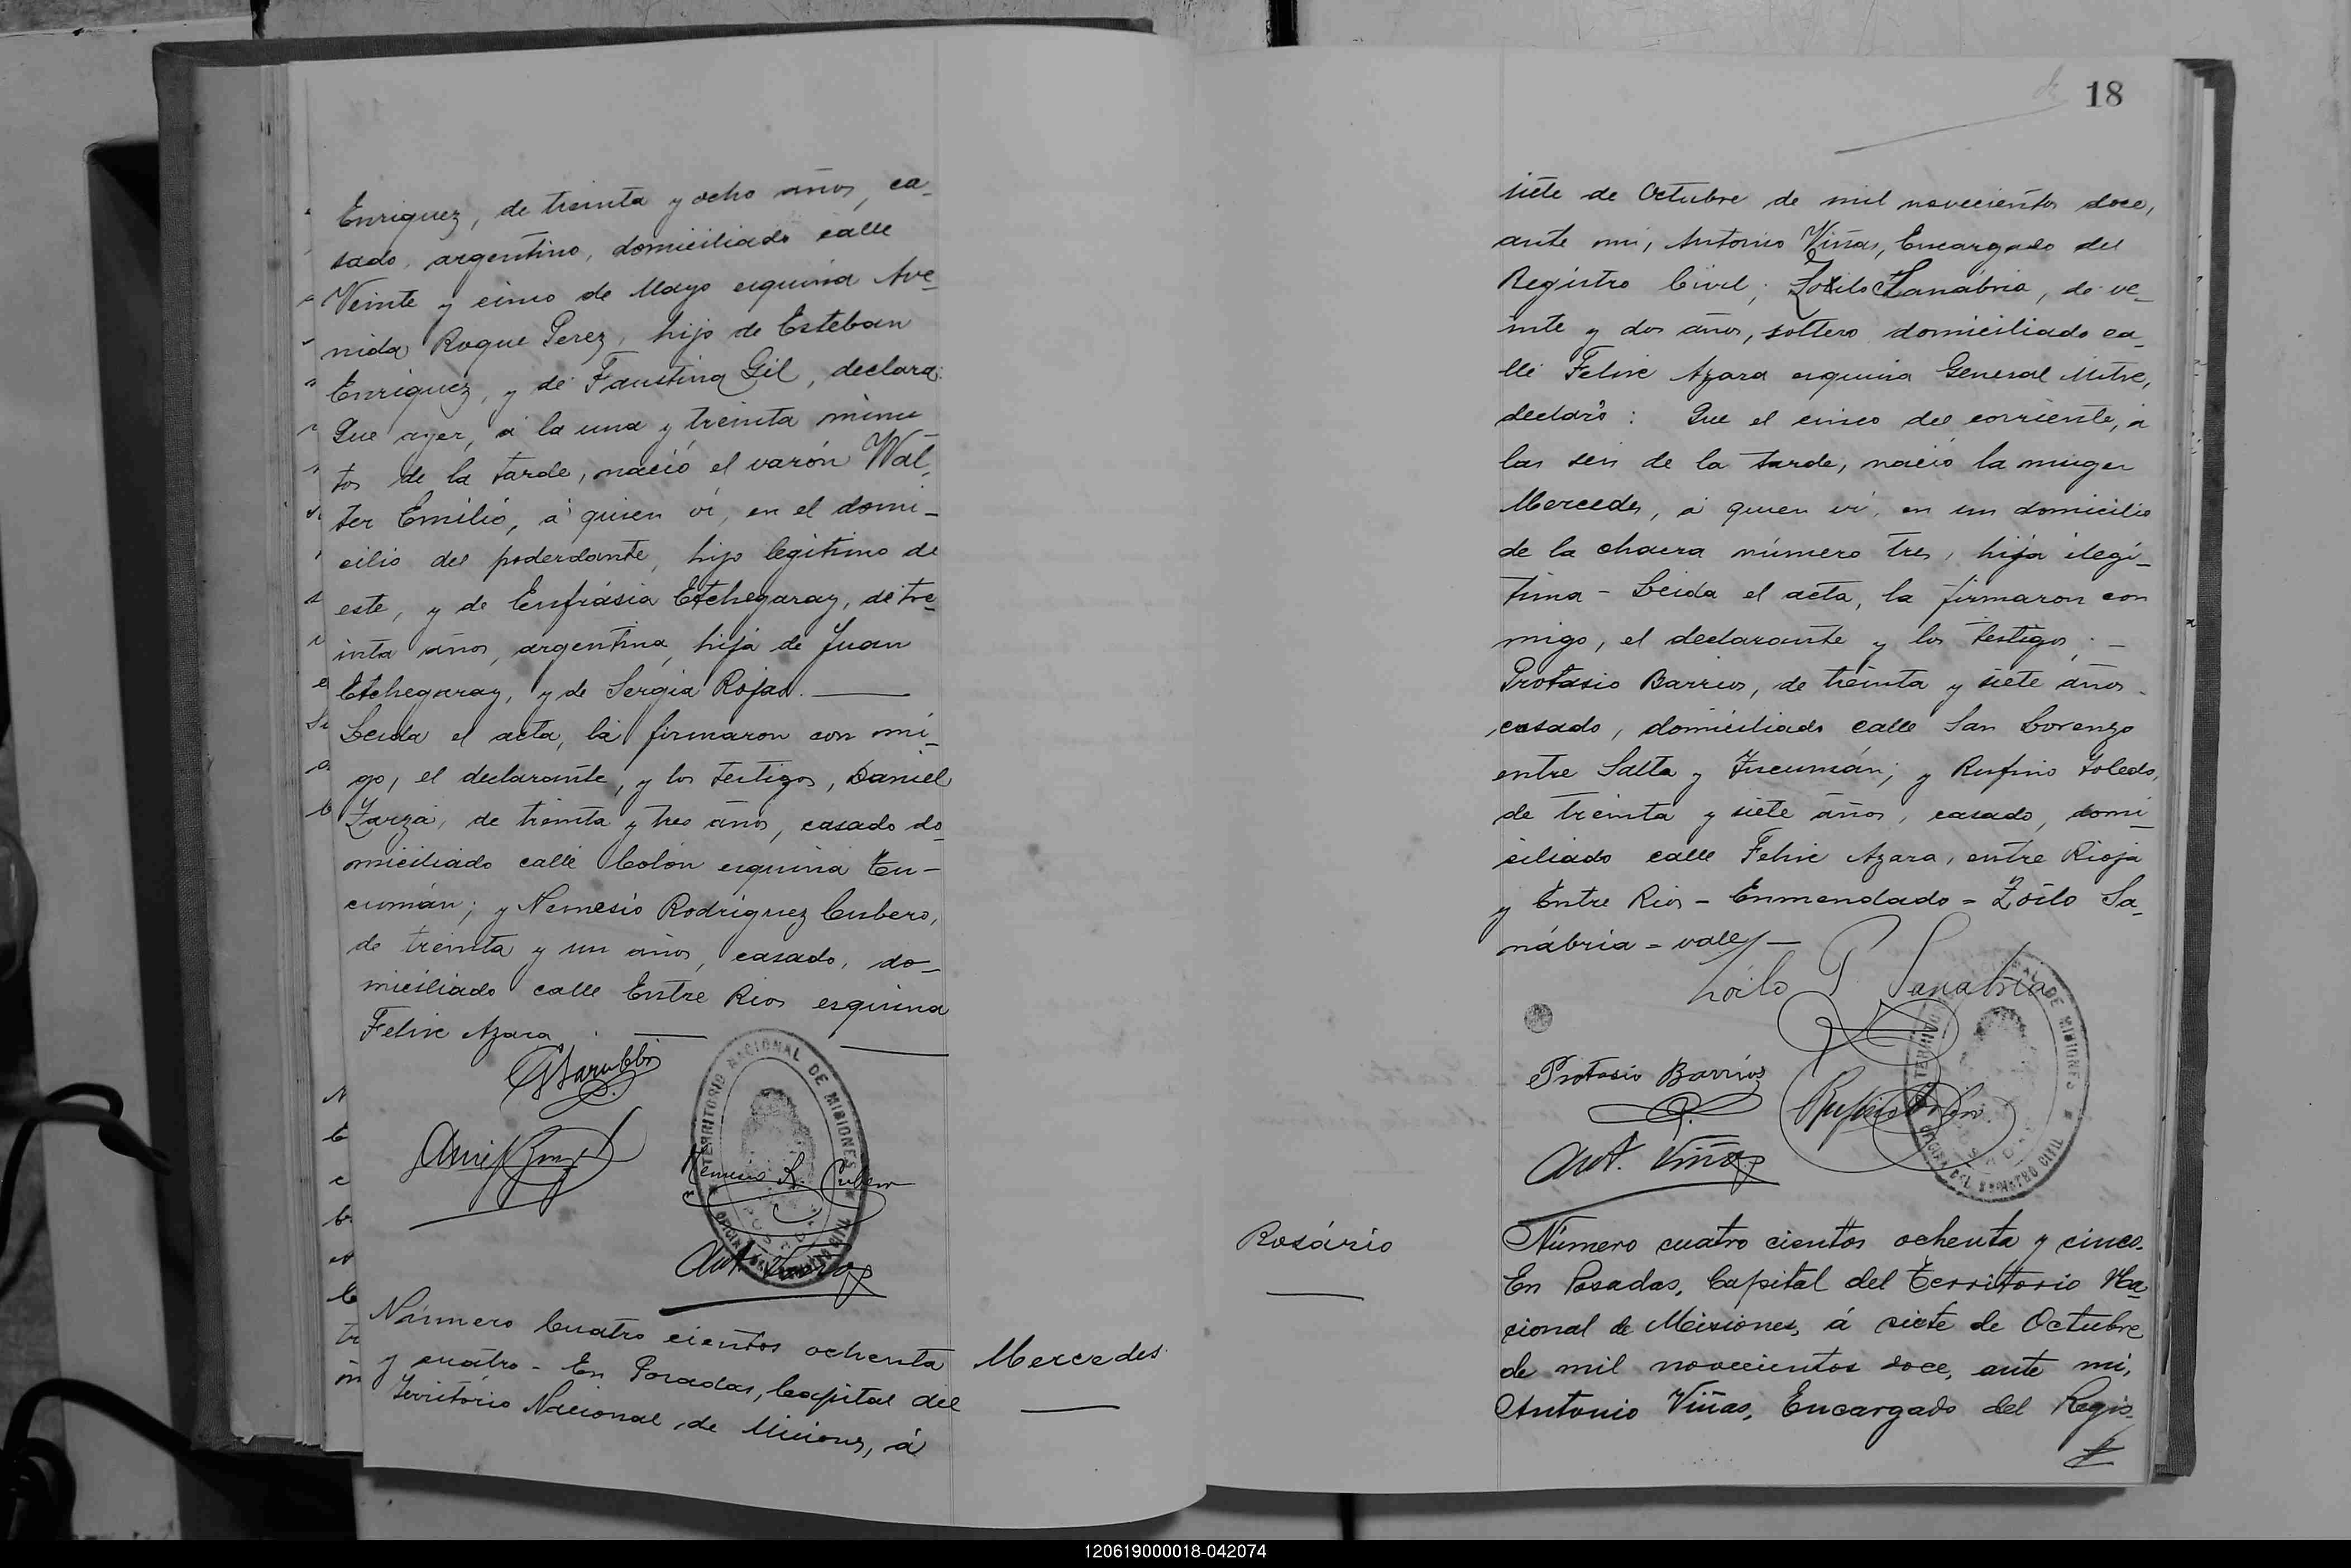 Enriquez, de treinta y ocho años, ca-
sado, argentino, domiciliado calle
Veinte y cinco de Mayo esquina Ave-
nida Roque Perez, hijo de Esteban
Enriquez, y de Faustina Gil, declara:
Que ayer, á la una y treinta minu-
tos de la tarde, nació el varón Wal-
ter Emilio, á quien ví, en el domi-
cilio del poderdante, hijo legítimo de
este, y de Eufrásia Etchegaray, de tre-
inta años, argentina, hija de Juan
Etchegaray, y de Sergia Rojas.
Leida el acta, la firmaron con mi-
go, el declarante, y los testigos, Daniel
Zarza, de treinta y tres años, casado do-
miciliado calle Colón esquina Tu-
cumán; y Nemesio Rodriguez Cubero,
de treinta y un años, casado, do-
miciliado calle Entre Rios esquina
Felix Azara
TERRITORIO NACIONAL DE MISIONES
OFICINA DEL REGISTRO CIVIL
POSADAS
Nemesio R. Cubero
Ant. Viñas
Número Cuatro cientos ochenta
y cuatro - En Posadas, Capital del
Territorio Nacional de Misiones, á
Mercedes
18
siete de Octubre de mil novecientos doce,
ante mi, Antonio Viñas, Encargado del
Registro Civil; Zoilo Sanábria, de ve-
inte y dos años, soltero domiciliado ca-
lle Felix Azara esquina General Mitre,
declaró: Que el cinco del corriente, á
las seis de la tarde, nació la muger
Mercedes, á quien ví, en un domicilio
de la chacra número tres, hija ilegí-
tima - Leida el acta, la firmaron con
migo, el declarante y los testigos; -
Protasio Barrios, de treinta y siete años
casado, domiciliado calle San Lorenzo
entre Salta y Tucumán; y Rufino Toledo,
de treinta y siete años, casado, domi-
ciliado calle Felix Azara, entre Rioja
y Entre Rios - Enmendado = Zoilo Sa-
nábria = vale -
Zoilo P. Sanabria
TERRITORIO NACIONAL DE MISIONES
OFICINA DEL REGISTRO CIVIL
Protasio Barrios
Ant. Viñas
Rosário
Número cuatro cientos ochenta y cinco.
En Posadas, Capital del Territorio Na-
cional de Misiones, á siete de Octubre
de mil novecientos doce, ante mi,
Antonio Viñas, Encargado del Regis-
120619000018-042074